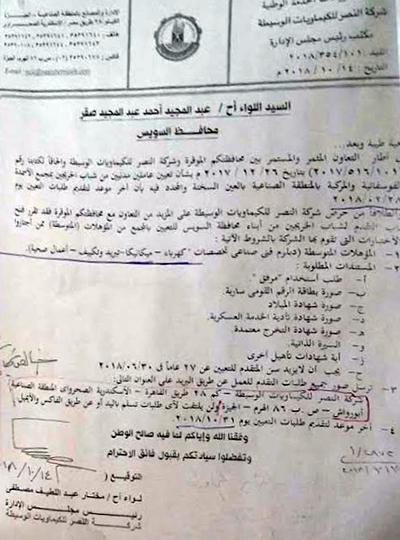 شركة النصر للكيماويات الوسيطة
مكتب رئيس مجلس الإدارة
التاريخ : ٢٠١٨/١٠/١٤
السيد اللواء أ.ح/ عبد المجيد أحمد عبد المجيد صقر
محافظ السويس
طيبة وبعد...
أطار التعاون المثمر والمستمر بين محافظتكم الموقرة وشركة النصر للكيماويات الوسيطة وإلحاقاً لكتابنا رقم
بتاريخ ٢٠١٧/١٢/٢٦ بشأن تعيين عاملين مدنيين من شباب الخريجين بمجمع الأسمدة
الفوسفاتية والمركبة بالمنطقة الصناعية بالعين السخنة والمحدد فيه بأن أخر موعد لتقديم طلبات التعيين يوم
من حرص شركة النصر للكيماويات الوسيطة على المزيد من التعاون مع محافظتكم الموقرة فقد تقرر فتح
التقدم لشباب الخريجين من أبناء محافظة السويس للتعيين بالمجمع من المؤهلات (المتوسطة) ممن أجتازوا
الأختبارات التى تقوم بها الشركة بالشروط الآتية :
١- المؤهلات المتوسطة (دبلوم فنى صناعى تخصصات "كهرباء - ميكانيكا - تبريد وتكييف - أعمال صحية).
٢- المستندات المطلوبة :
أ- طلب أستخدام "مرفق"
ب- صورة بطاقة الرقم القومى سارية.
ج- صورة شهادة الميلاد
د- صورة شهادة تأدية الخدمة العسكرية.
صورة شهادة التخرج معتمدة.
و- السيرة الذاتية.
ز- أية شهادات تأهيل أخرى
ح- يجب أن لايزيد سن المتقدم للتعيين عن ٢٧ عاماً فى ٢٠١٨/٠٦/٣٠
٣- ترسل صور جميع طلبات التقدم للعمل عن طريق البريد على العنوان التالى:
شركة النصر للكيماويات الوسيطة - كم ٢٨ طريق القاهرة - الأسكندرية الصحراوى المنطقة الصناعية
أبورواش - ص . ب ٨٦ الهرم - الجيزة ولن يلتفت لأى طلبات تسلم باليد أو عن طريق الفاكس والأيميل
٤- أخر موعد لتقديم طلبات التعيين يوم ٢٠١٨/١٠/٣١
وفقنا الله وإياكم لما فيه صالح الوطن
وتفضلوا سيادتكم بقبول فائق الاحترام
التوقيع (
لواء أ.ح/ مختار عبد اللطيف مصطفى
رئيس مجلس الإدارة
شركة النصر للكيماويات الوسيطة